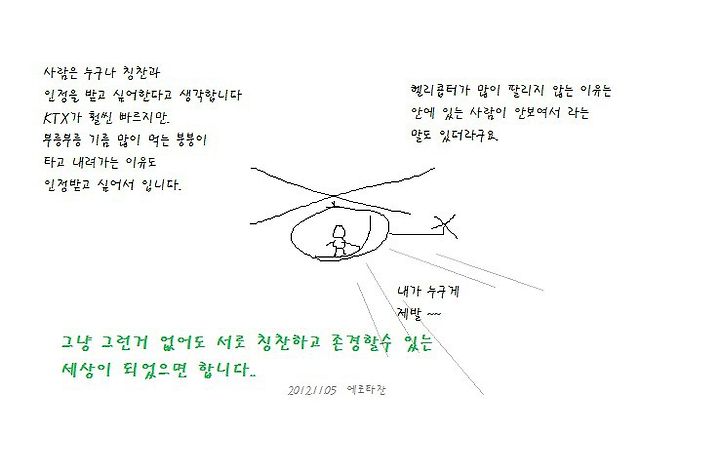 사람은 누구나 칭찬과
인정을 받고 싶어한다고 생각합니다
KTX가 훨씬 빠르지만.
부릉부릉 기름 많이 먹는 붕붕이
타고 내려가는 이유도
인정받고 싶어서 입니다.
헬리콥터가 많이 팔리지 않는 이유는
안에 있는 사람이 안보여서 라는
말도 있더라구요.
내가 누구게
제발 ~~
그냥 그런거 없어도 서로 칭찬하고 존경할수 있는
세상이 되었으면 합니다..
2012.11.05 에로타잔